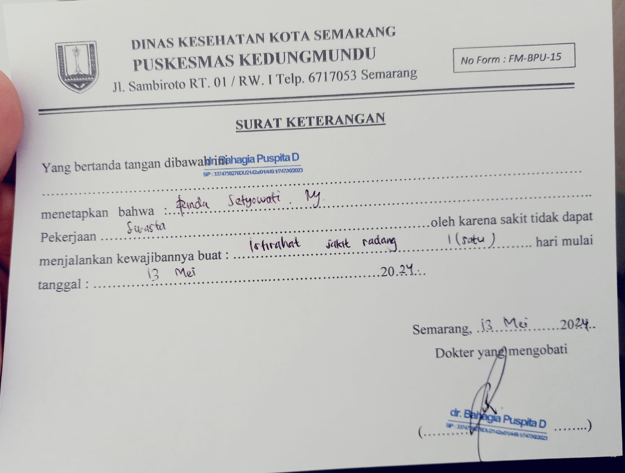 DINAS KESEHATAN KOTA SEMARANG
PUSKESMAS KEDUNGMUNDU
Jl. Sambiroto RT. 01 / RW. I Telp. 6717053 Semarang
No Form : FM-BPU-15
SURAT KETERANGAN
Yang bertanda tangan dibawah ini dr. Bahagia Puspita D
menetapkan bahwa : Setyowati
Pekerjaan Swasta oleh karena sakit tidak dapat
menjalankan kewajibannya buat : Istirahat sakit radang 1 (satu) hari mulai
tanggal : 13 Mei 2024
Semarang, 13 Mei 2024
Dokter yang mengobati
dr. Bahagia Puspita D
(....................)